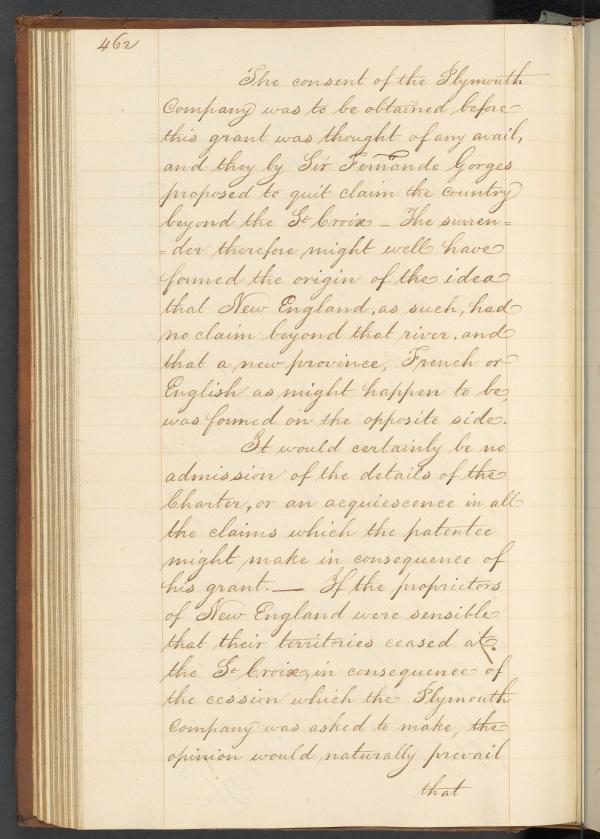 462
The consent of the Plymouth
Company was to be obtained before
this grant was thought of any avail,
and they by Sir Fernando Gorges
proposed to quit claim the country
beyond the St Croix – The surren=
=der therefore might well have
formed the origin of the idea
that New England, as such, had
no claim beyond that river, and
that a new province, French or
English as might happen to be,
was formed on the opposite side.
It would certainly be no
admission of the details of the
Charter, or an acquiescence in all
the claims which the patentee
might make in consequence of
his grant. — If the proprietors
of New England were sensible
that their territories ceased at
the St Croix, in consequence of
the cession which the Plymouth
Company was asked to make, the
opinion would naturally prevail
that